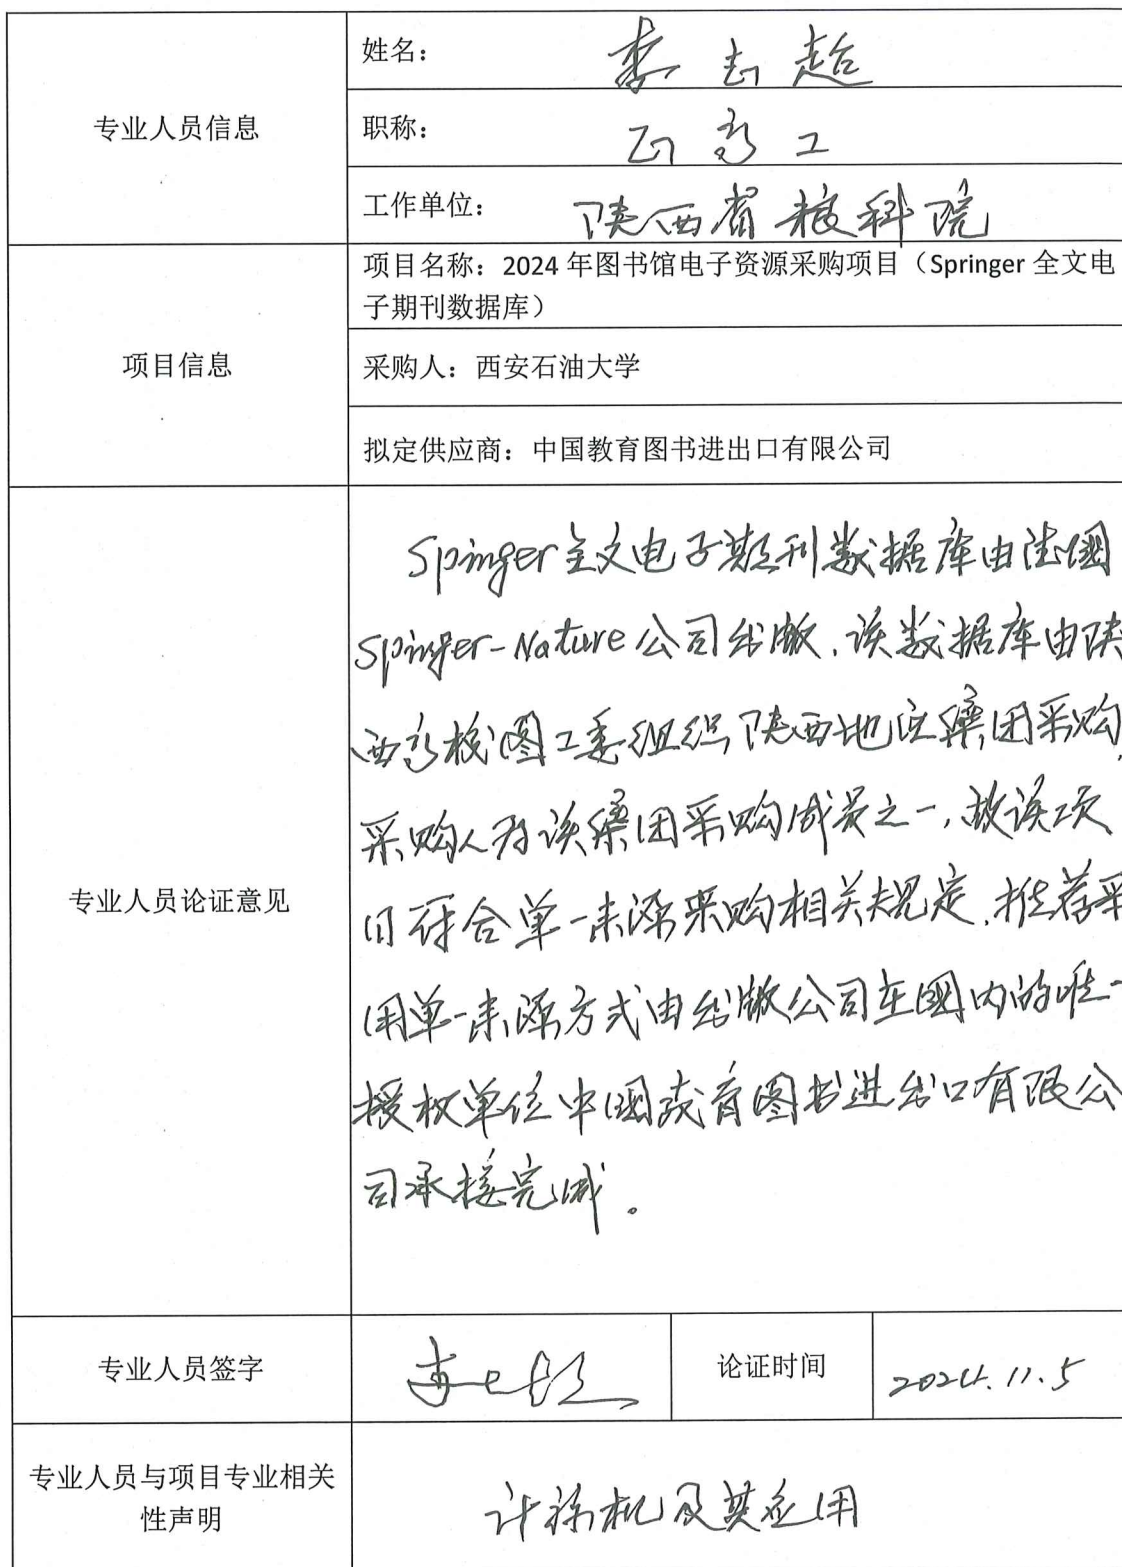 专业人员信息
姓名：李志超
职称：正高工
工作单位：陕西省粮科院
项目信息
项目名称：2024 年图书馆电子资源采购项目（Springer 全文电
子期刊数据库）
采购人：西安石油大学
拟定供应商：中国教育图书进出口有限公司
专业人员论证意见
Spinger全文电子期刊数据库由德国
Spinger-Nature公司出版，该数据库由陕
西高校图工委组织陕西地区集团采购，
采购人为该集团采购成员之一，故该项
目符合单一来源采购相关规定，推荐采
用单一来源方式由出版公司在国内的唯一
授权单位中国教育图书进出口有限公
司承接完成。
专业人员签字
李志超
论证时间
2024.11.5
专业人员与项目专业相关
性声明
计算机及其应用